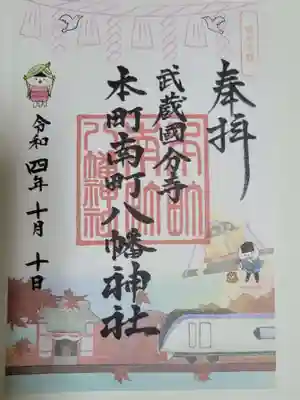 奉拝
武蔵國分寺
本町南町八幡神社
令和四年十月十日